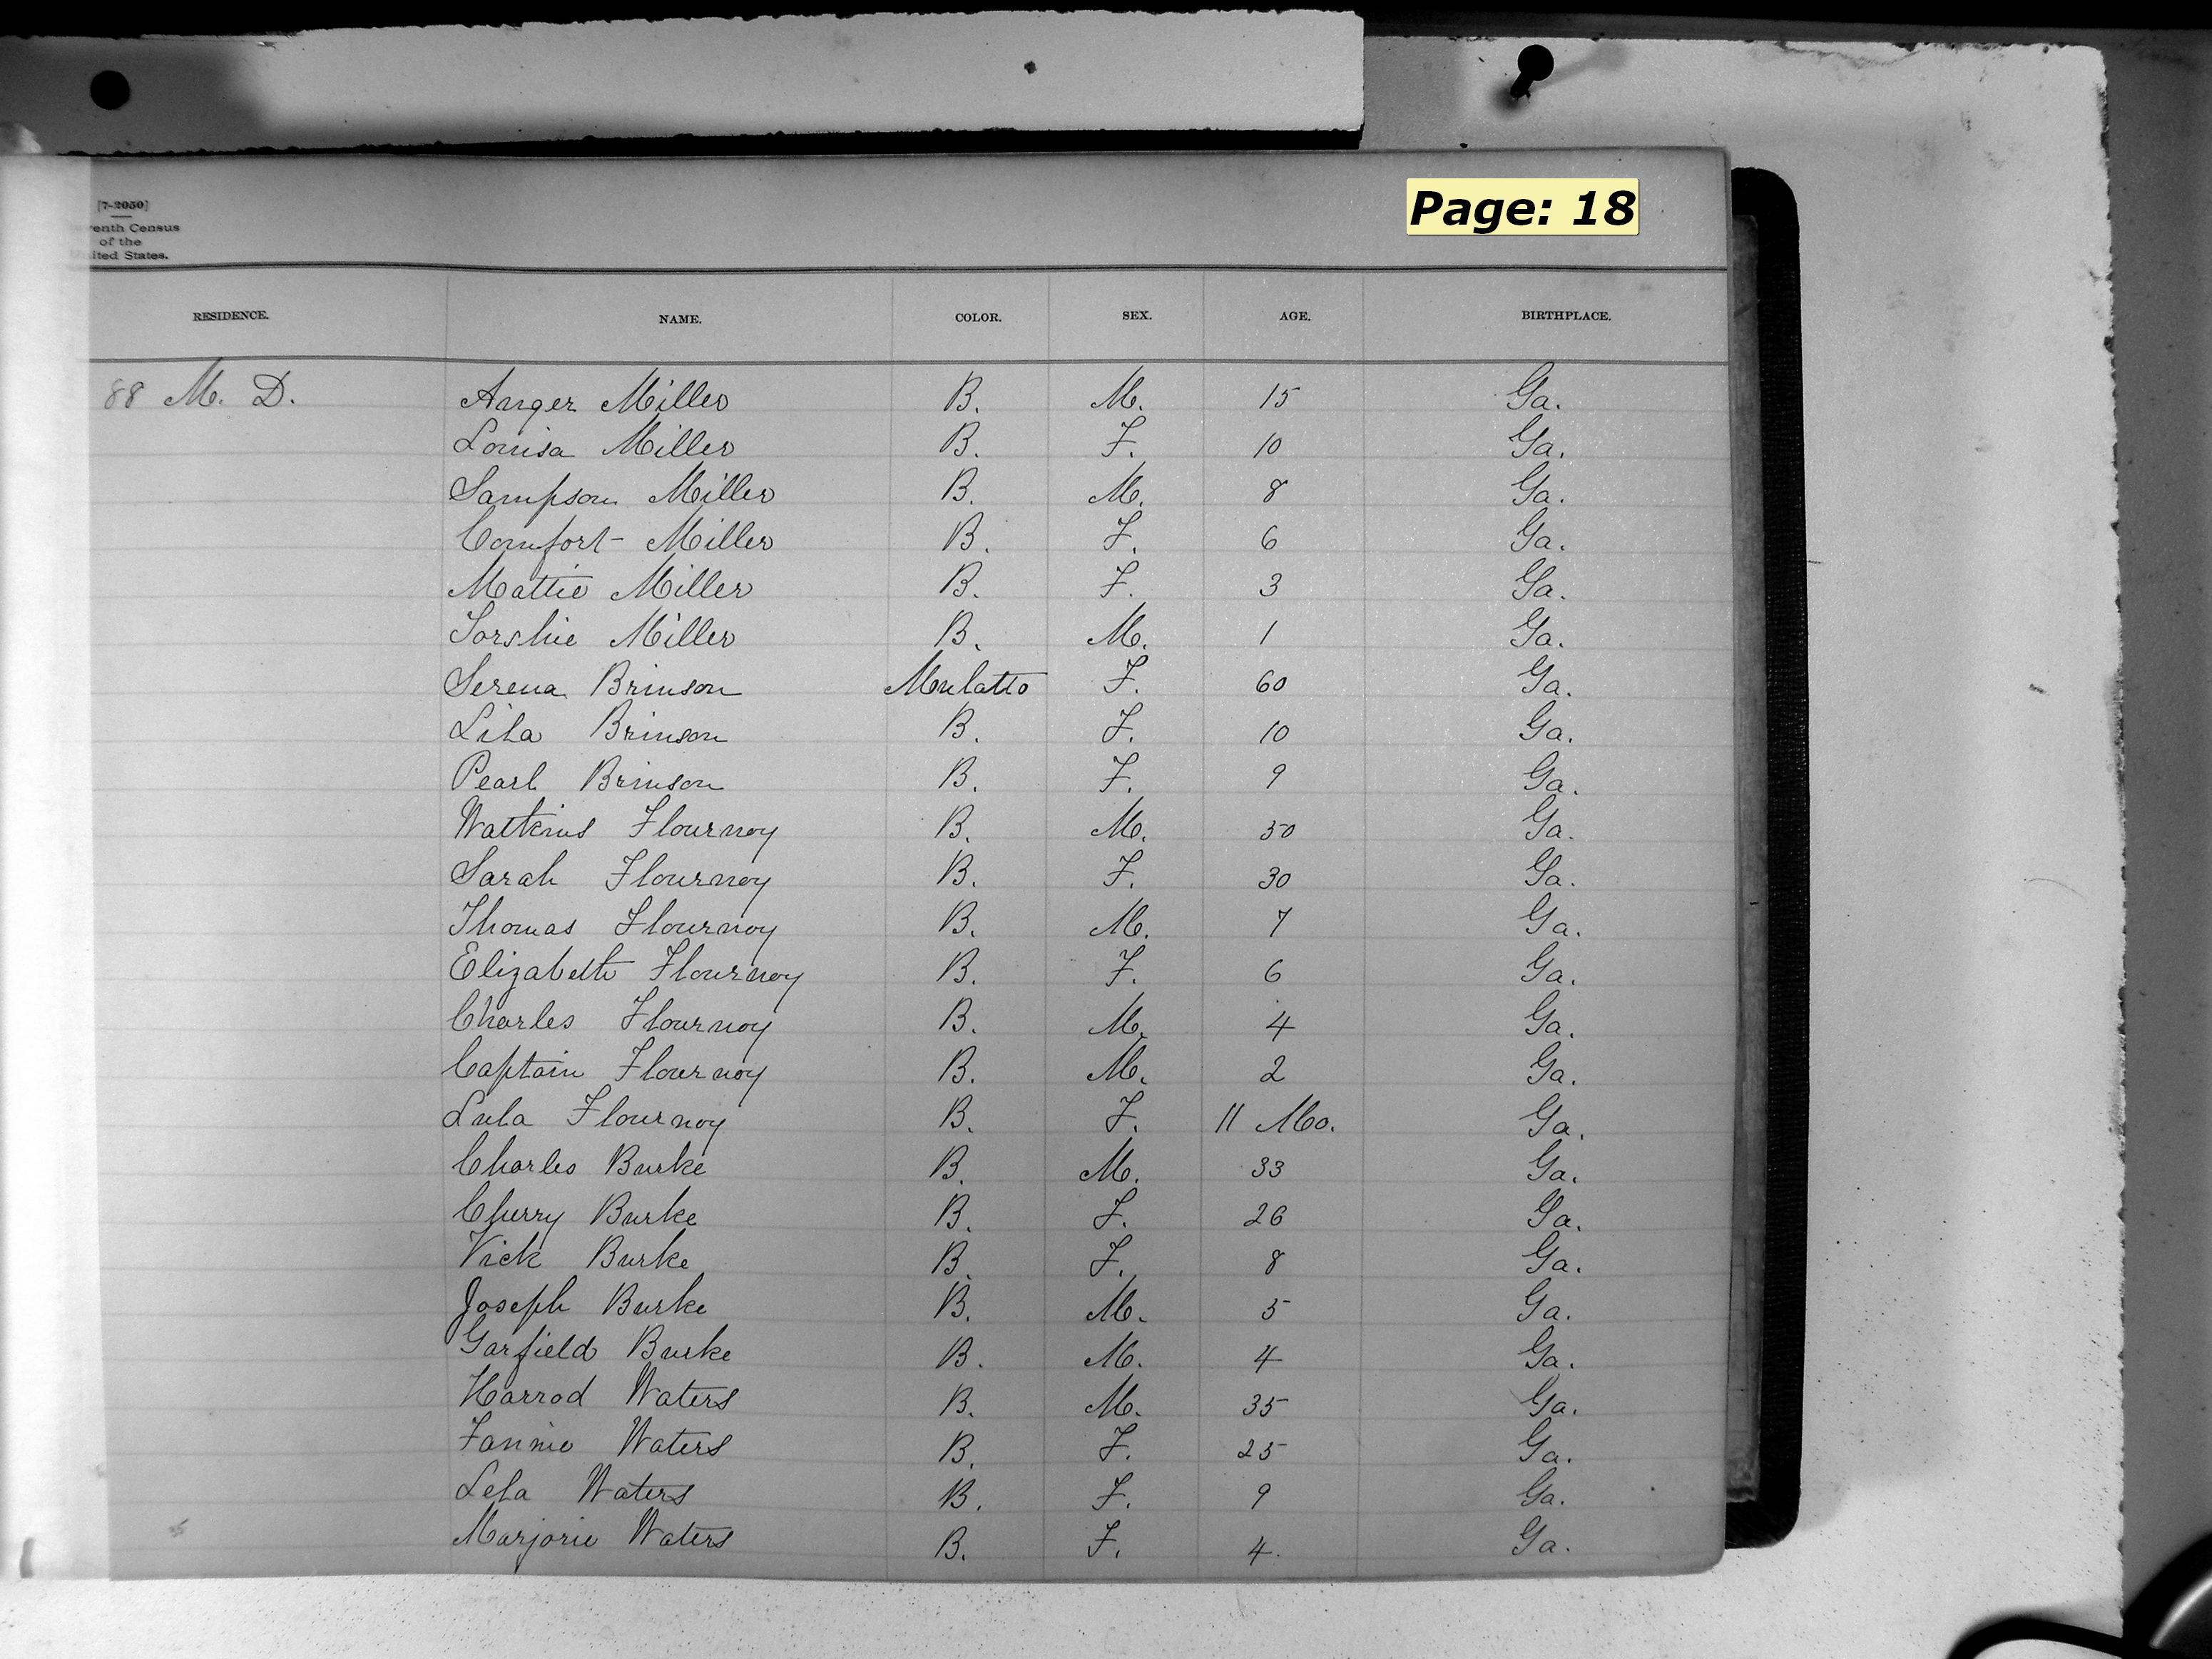 [7-2050]
venth Census
of the
ited States.
Page: 18
RESIDENCE. NAME. COLOR. SEX. AGE. BIRTHPLACE.
88 M. D. Anger Miller B. M. 15 Ga.
Louisa Miller B. F. 10 Ga.
Sampson Miller B. M. 8 Ga.
Comfort Miller B. F. 6 Ga.
Mattie Miller B. F. 3 Ga.
Miller B. M. 1 Ga.
Serena Brinson Mulatto F. 60 Ga.
Lila Brinson B. F. 10 Ga.
Pearl Brinson B. F. 9 Ga.
Watkins Flournoy B. M. 50 Ga.
Sarah Flournoy B. F. 30 Ga.
Thomas Flournoy B. M. 7 Ga.
Elizabeth Flournoy B. F. 6 Ga.
Charles Flournoy B. M. 4 Ga.
Captain Flournoy B. M. 2 Ga.
Lula Flournoy B. F. 11 Mo. Ga.
Charles Burke B. M. 33 Ga.
Cherry Burke B. F. 26 Ga.
Vick Burke B. F. 8 Ga.
Joseph Burke B. M. 5 Ga.
Garfield Burke B. M. 4 Ga.
Harrod Waters B. M. 35 Ga.
Fannie Waters B. F. 25 Ga.
Lela Waters B. F. 9 Ga.
Marjorie Waters B. F. 4. Ga.